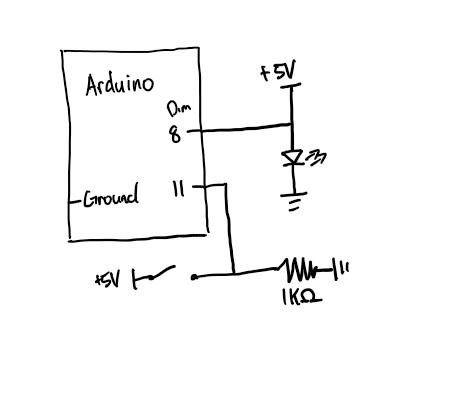 +5V
Arduino
Dim
8
Ground
11
+5V
1KΩ